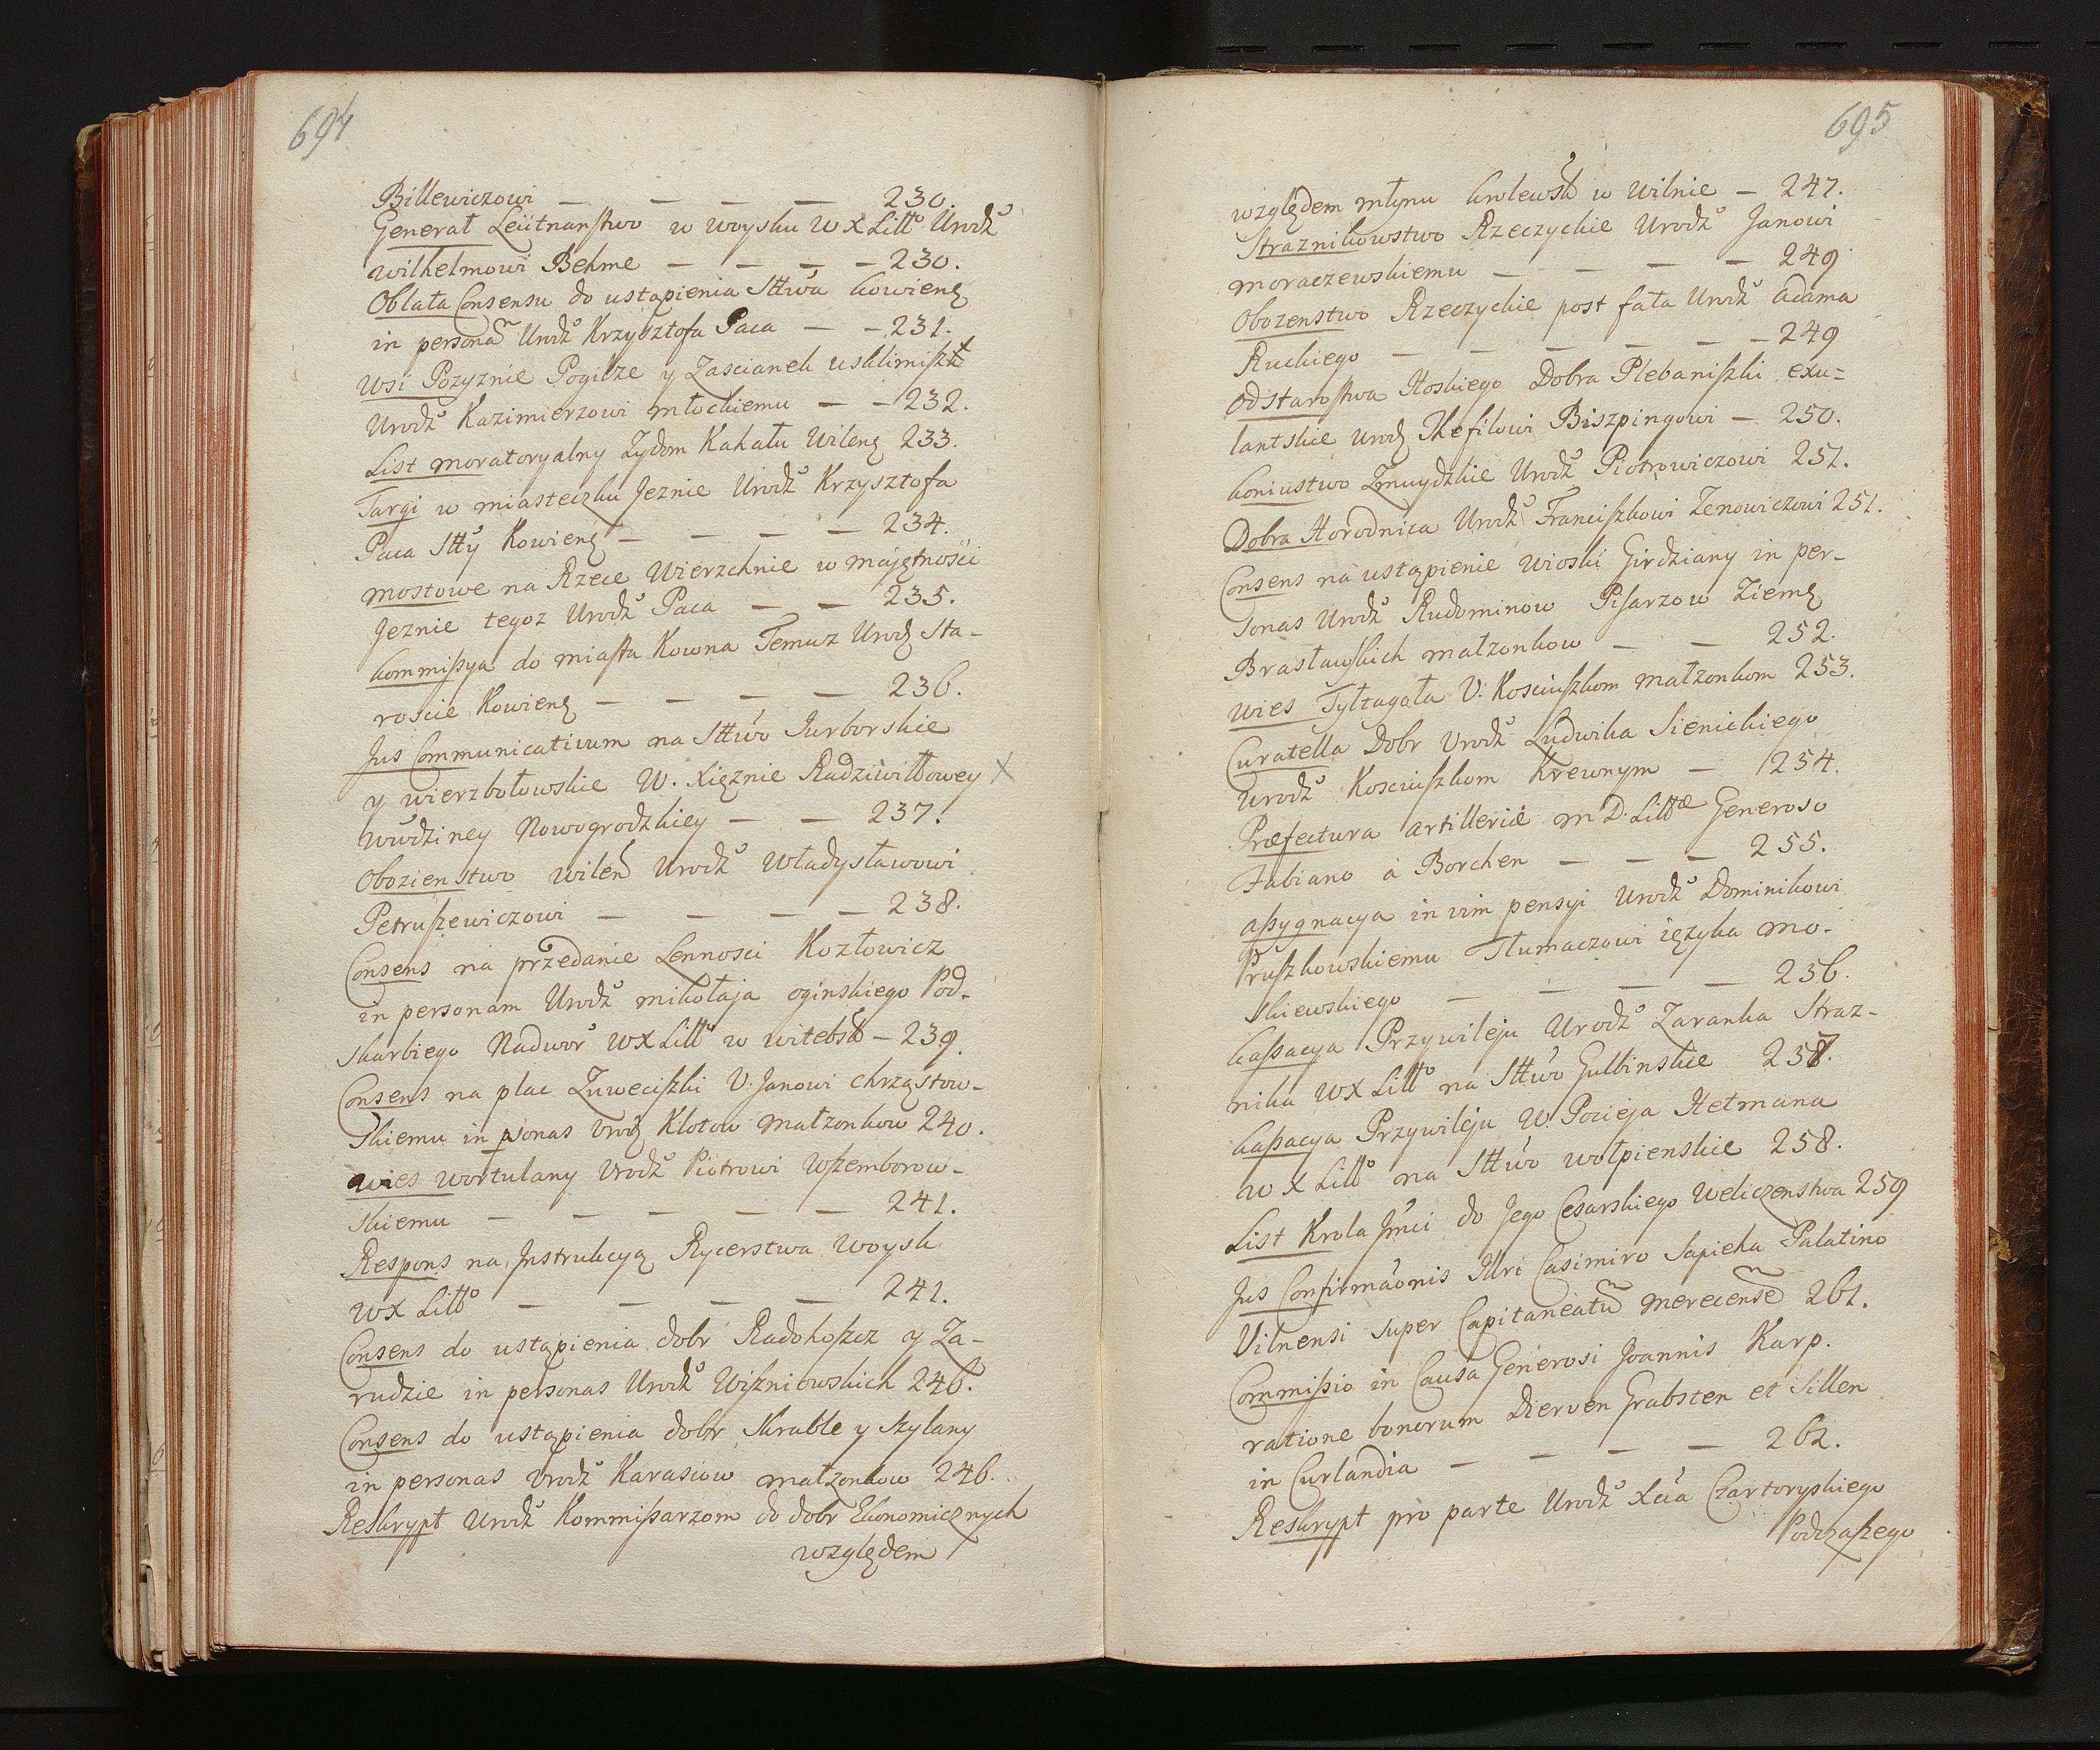 694
Billewiczowi — — — — 230.
Generał Leütnanstwo w woysku W X Litto Urodzo
wilhelmowi Behme — — — — 230.
Oblata Consensu do ustąpienia Sttwa kowieng
in personam Urodzo Krzysztofa Paca — — 231.
Wsi Pozyznie Pogilze y Zascianek usklimiszki
Urodzo Kazimierzowi młockiemu — — 232.
List moratoryalny Zydom Kahału Wileng 233.
Targi w miasteczku Jeznie Urodzo Krzysztofa
Paca Stty Kowieng — — — — 234.
mostowe na Rzece Wierzchnie w majętności
Jeznie tegoz Urodzo Paca — — 235.
kommissya do miasta Kowna Temuz Urodz Sta-
roscie Kowieng — — — — 236.
Jus Communicativum na Sttwo Jurborskie
y wierzbołowskie W. Xiężnie Radziwiłłowey X
Wwdziney Nowogrodzkiey — — 237.
Obozienstwo wileń Urodzo Władysławowi
Petruszewiczowi — — — — 238.
Consens na przedanie Lennosci Kozłowicz
in personam Urodzo mikołaja oginskiego Pod-
skarbiego Nadwor WX Litto w witebsk — 239.
Consens na plac Zuweciszki U. Janowi chrząstow-
skiemu in psonas Urodz Klotow małzonkow 240.
wies wortulany Urodzo Piotrowi Wszemborow-
skiemu — — — — — 241.
Respons na Instrukcyą Rycerstwa Woysk
WX Litto — — — — 241.
Consens do ustąpienia dobr Radohoszcz y Za-
rudzie in personas Urodzo Wiszniowskich 246.
Consens do ustąpienia dobr Skrable y szylany
in personas Urodzo Karasiow małzonkow 246.
Reskrypt Urodzo Kommissarzom do dobr Ekonomicznych
względem
695
względem młynu krolewsko w Wilnie — 247.
Straznikowstwo Rzeczyckie Urodzo Janowi
moraczewskiemu — — — — 249
Obozenstwo Rzeczyckie post fata Urodzo Adama
Ruckiego — — — — — 249
Od starostwa Hoskiego Dobra Plebaniszki exu=
lantskie Urodz Thefilowi Biszpingowi — 250.
koniustwo Zmuydzkie Urodzo Piotrowiczowi 251.
Dobra Horodnica Urodzo Franciszkowi Zenowiczowi 251.
Consens na ustąpienie Wioski Girdziany in per-
sonas Urodzo Rudominow Pisarzow Ziemg
Brasławskich małzonkow — — 252.
wies Tyltagoła U. Kosciuszkom małzonkom 253.
Curatella Dobr Urodzo Ludwika Sienickiego
Urodzo Kosciuszkom Krewnym — 254.
Præfectura artilleriæ M D. Littæ Generoso
Fabiano à Borchen — — — 255.
assygnacya in vim pensyi Urodzo Dominikowi
Pruszkowskiemu Tłumaczowi ięzyka mo-
skiewskiego — — — — 256.
kassacya Przywileju Urodzo Zaranka Straz-
nika WX Litto na Sttwo Gulbinskie 257.
kassacya Przywileju W. Pocieja Hetmana
W X Litto na Sttwo wołpienskie 258.
List Krola Jmci do Jego Cesarskiego Weliczenstwa 259
Jus Confirmaonis Illri Casimiro Sapieha Palatino
Vilnensi super Capitaneatum merecensem 261.
Commissio in Causa Generosi Joannis Karp.
ratione bonorum Dierven Grabsten et Sillen
in Curlandia — — — 262.
Reskrypt pro parte Urodzo Xcia Czartoryskiego
Podczaszego